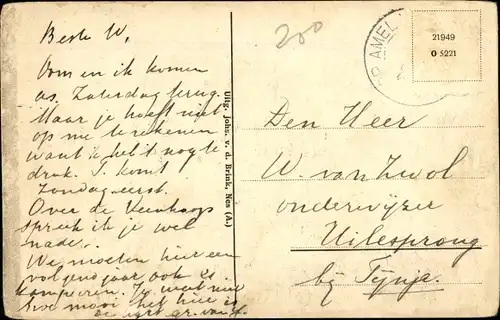 Beste W,
Oom en ik komen
as. Zaterdag terug.
Maar je hoeft niet
op me te rekenen
want ik heb 't nog te
druk. Ik komt
Zondag eerst.
Over de
spreek ik je wel
nader.
We moeten hier een
volgend jaar ook es
kamperen. Je weet niet
hoe mooi het hier is
gr. van
Uitg. Johs. v. d. Brink, Nes (A.)
200
AMEL
21949
O 5221
Den Heer
W. van Zwol
onderwijzer
Uilesprong
bij Tijnje.